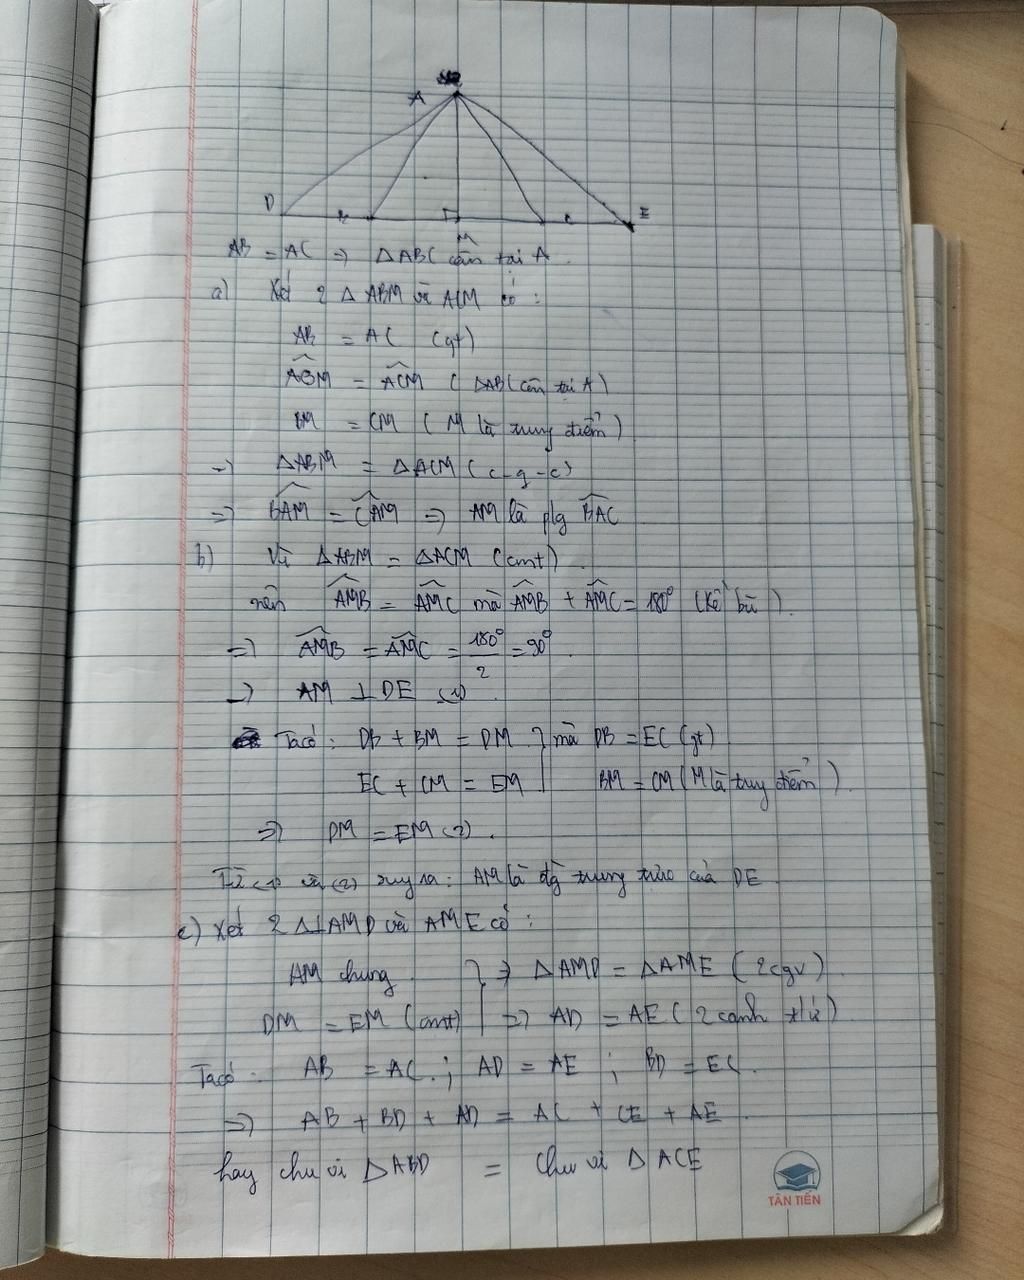 A
D B M C E
AB = AC => ΔABC cân tại A.
a) Xét 2 Δ ABM và ACM có :
AB = AC (gt)
ABM = ACM ( ΔABC cân tại A)
BM = CM ( M là trung điểm )
=> ΔABM = ΔACM (c-g-c)
=> BAM = CAM => AM là p/g BAC
b) Vì ΔABM = ΔACM (cmt).
nên AMB = AMC mà AMB + AMC = 180° (kề bù ).
=> AMB = AMC = 180°/2 = 90°.
=> AM ⊥ DE (1).
Ta có : DB + BM = DM } mà DB = EC (gt)
EC + CM = EM BM = CM ( M là trung điểm ).
=> DM = EM (2).
Từ (1) và (2) suy ra : AM là đg trung trực của DE
c) Xét 2 Δ⊥AMD và AME có :
AM chung. } => ΔAMD = ΔAME ( 2cgv).
DM = EM (cmt) => AD = AE ( 2 cạnh t/ứ )
Ta có : AB = AC ; AD = AE ; BD = EC.
=> AB + BD + AD = AC + CE + AE.
hay chu vi ΔABD = chu vi ΔACE
TÂN TIẾN